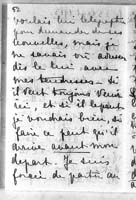 52
voulais lui télégraphier
pour demander de ses
nouvelles, mais je
ne savais où adresser
dès le lui avec
mes tendresses. Si
il veut toujours venir
ici, et si il le peut
je voudrais bien, si
faire ce peut qu'il
arrive avant mon
départ. Je suis
forcé de partir au